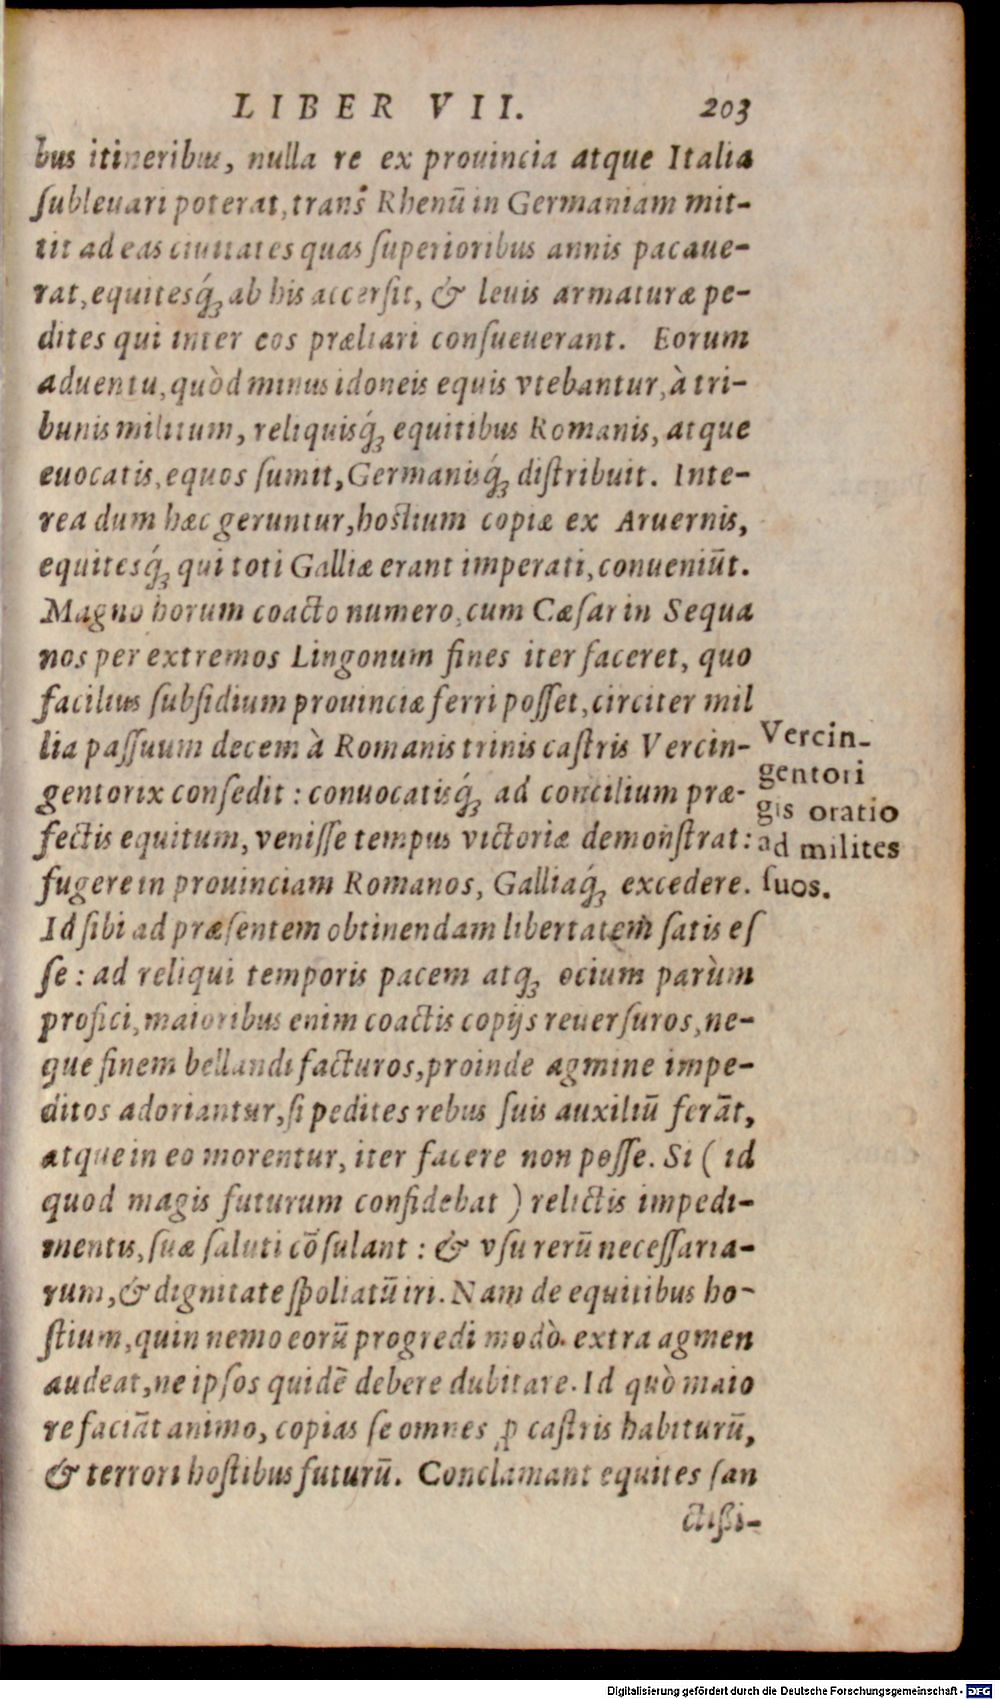 LIBER VII. 203
bus itineribus, nulla re ex prouincia atque Italia
ſubleuari poterat, trans Rhenũ in Germaniam mit-
tit ad eas ciuitates quas ſuperioribus annis pacaue-
rat, equitesq́ꝫ ab his accerſit, & leuis armaturæ pe-
dites qui inter eos præliari conſueuerant. Eorum
aduentu, quòd minus idoneis equis vtebantur, à tri-
bunis militum, reliquisq́ꝫ equitibus Romanis, atque
euocatis, equos ſumit, Germanisq́ꝫ diſtribuit. Inte-
rea dum hæc geruntur, hoſtium copiæ ex Aruernis,
equitesq́ꝫ qui toti Galliæ erant imperati, conueniũt.
Magno horum coacto numero, cum Cæſar in Sequa
nos per extremos Lingonum fines iter faceret, quo
facilius ſubſidium prouinciæ ferri poſſet, circiter mil
lia paſſuum decem à Romanis trinis caſtris Vercin-
gentorix conſedit: conuocatisq́ꝫ ad concilium præ-
fectis equitum, veniſſe tempus victoriæ demonſtrat:
fugere in prouinciam Romanos, Galliaq́ꝫ excedere.
Id ſibi ad præſentem obtinendam libertatem ſatis eſ
ſe: ad reliqui temporis pacem atqꝫ ocium parùm
profici, maioribus enim coactis copijs reuerſuros, ne-
que finem bellandi facturos, proinde agmine impe-
ditos adoriantur, ſi pedites rebus ſuis auxiliũ ferãt,
atque in eo morentur, iter facere non poſſe. Si ( id
quod magis futurum confidebat ) relictis impedi-
mentis, ſuæ ſaluti cõſulant: & vſu rerũ neceſſaria-
rum, & dignitate ſpoliatũ iri. Nam de equitibus ho-
ſtium, quin nemo eorũ progredi modò extra agmen
audeat, ne ipſos quidẽ debere dubitare. Id quò maio
re faciãt animo, copias ſe omnes ꝓ caſtris habiturũ,
& terrori hoſtibus futurũ. Conclamant equites ſan
ctißi-
Vercin-
gentori
gis oratio
ad milites
ſuos.
Digitalisierung gefördert durch die Deutsche Forschungsgemeinschaft - DFG